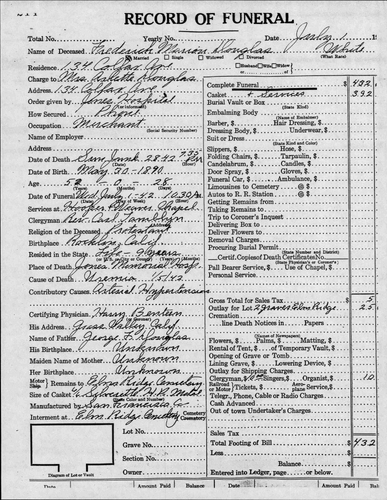 RECORD OF FUNERAL
Total No. Yearly No. July 1
Name of Deceased Frederick Marion Douglas White
Married Single Widowed Divorced (What Race)
Residence 134 Colfax Ave Husband Wife Widow of
Charge to Mrs. Douglas
Address 134 Colfax Ave.
Order given by Jones Hospital
How Secured Phone
Occupation Merchant
(Social Security Number)
Name of Employer
Address
Date of Death Sun. June 28 42
Date of Birth May 30 - 1890
Age 52 - 0 - 28
Date of Funeral Wed July 1 - 42 10:30 A
Services at Hooper Weaver Chapel
Clergyman Rev. Carl Tamblyn
Religion of the Deceased Protestant
Birthplace Rocklin, Calif.
Resided in the State Life
Place of Death Jones Memorial Hosp.
Cause of Death Uremia
Contributory Causes Arterial Hypertension
Certifying Physician
His Address Grass Valley Calif.
Name of Father George F. Douglas
His Birthplace Unknown
Maiden Name of Mother Unknown
Her Birthplace Unknown
Motor Ship Remains to Elm Ridge Cemetery
Size of Casket
Manufactured by San Francisco
Interment at Elm Ridge Cemetery Cemetery Crematory
Lot No.
Grave No.
Section No.
Owner
Diagram of Lot or Vault
Complete Funeral $ 432
Casket & Services 392
Burial Vault or Box
(State Kind)
Embalming Body
(Name of Embalmer)
Barber, $ Hair Dressing, $
Dressing Body, $ Underwear, $
Suit or Dress
(State Kind and Color)
Slippers, $ Hose, $
Folding Chairs, $ Tarpaulin, $
Candelabrum, $ Candles, $
Door Spray, $ Gloves, $
Funeral Car, $ Ambulance, $
Limousines to Cemetery @ $
Autos to R. R. Station @ $
Getting Remains from
Taking Remains to
Trip to Coroner's Inquest
Delivering Box to
Deliver Flowers to
Removal Charges
Procuring Burial Permit
(State Number and District)
Certif. Copies of Death Certificate No.
(State Physician's or Coroner's)
Pall Bearer Service, $ Use of Chapel, $
Personal Service
Gross Total for Sales Tax $ 5
Outlay for Lot 2 graves Elm Ridge 25
Cremation
line Death Notices in Papers
(Names of Newspapers)
Flowers, $ Palms, $ Matting, $
Rental of Tent, $ of Temporary Vault, $
Opening of Grave or Tomb
Lining Grave, $ Lowering Device, $
Outlay for Shipping Charges
Clergyman, $ Singers, $ Organist, $ 10
Railroad Tickets, $ Aeroplane Service, $
Telegr., Phone, Cable or Radio Charges
Cash Advanced
Out of town Undertaker's Charges
Sales Tax
Total Footing of Bill $ 432
Less
Balance $
Entered into Ledger, page or below.
Date Amount Paid Balance Date Amount Paid Balance